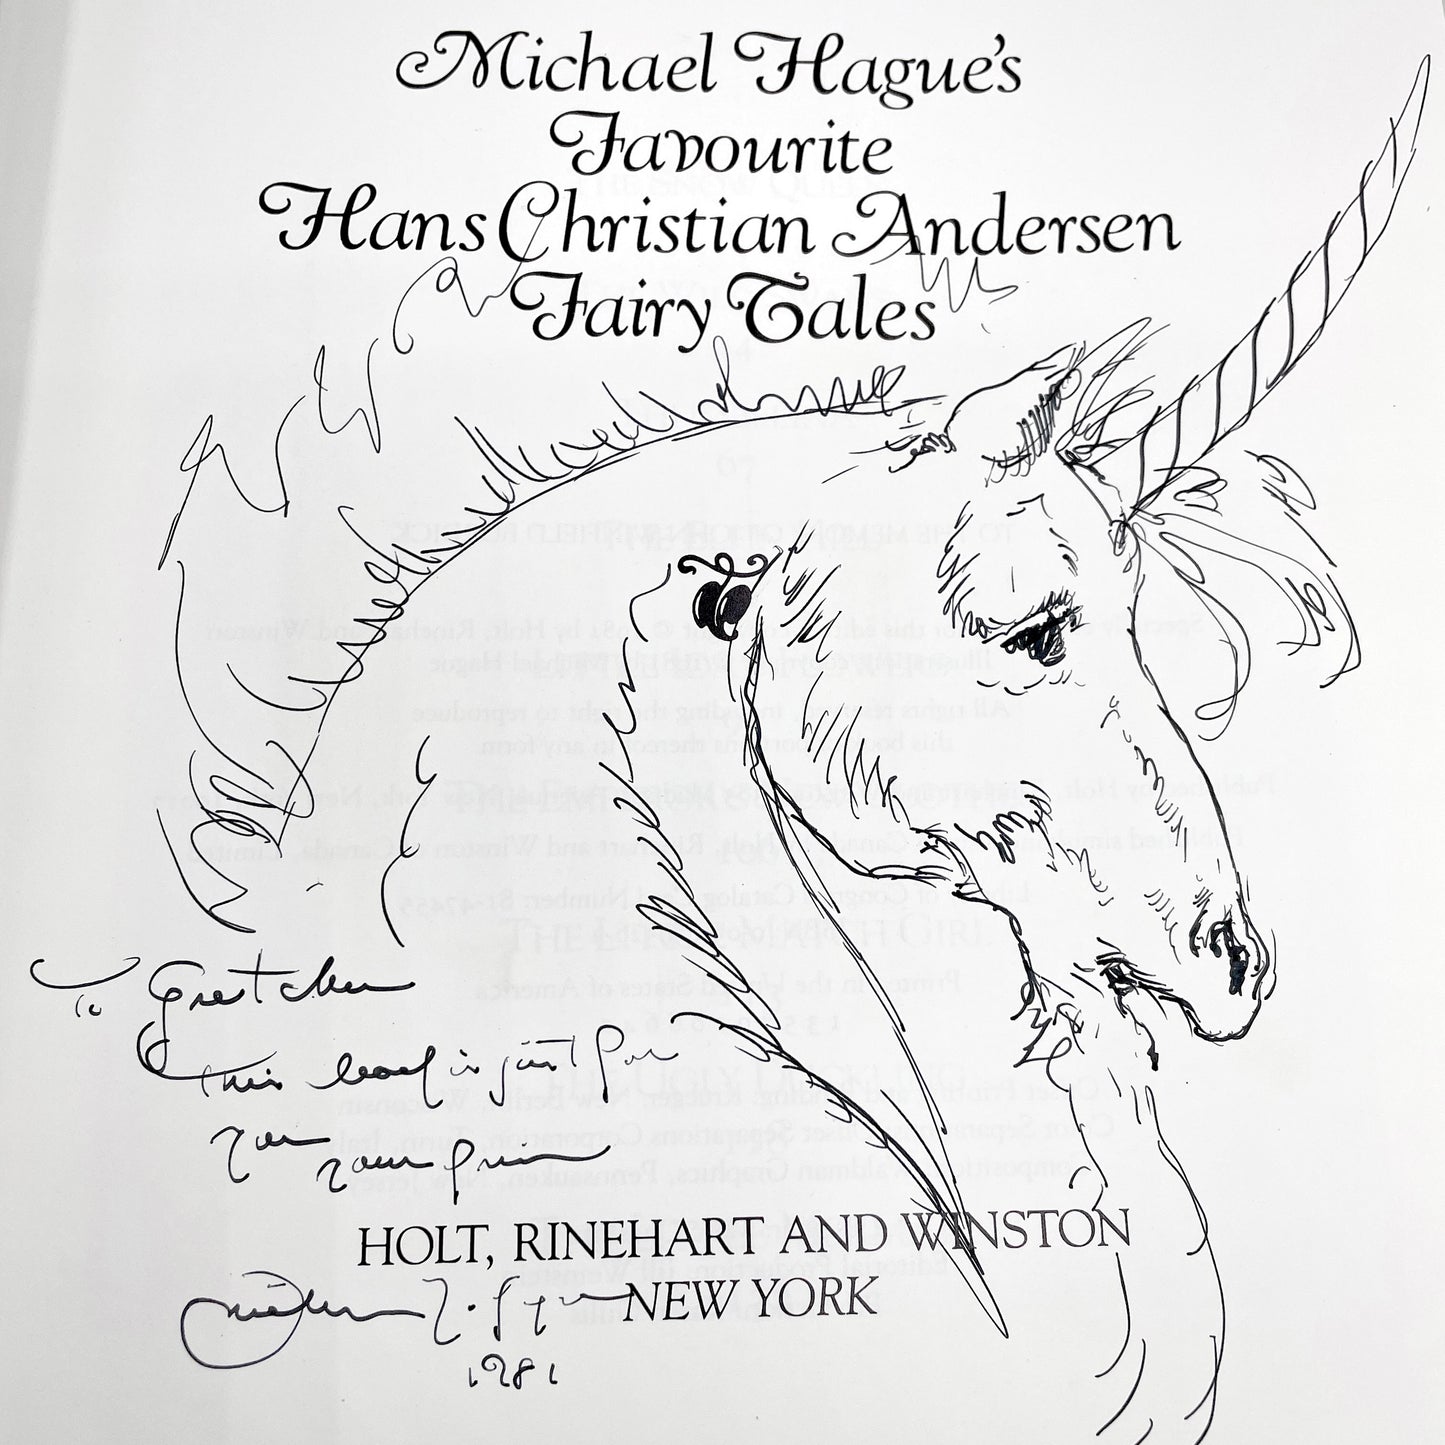 Michael Hague's
Favourite
Hans Christian Andersen
Fairy Tales
To Gretchen
this book is just for
you your friend
HOLT, RINEHART AND WINSTON
NEW YORK
1981